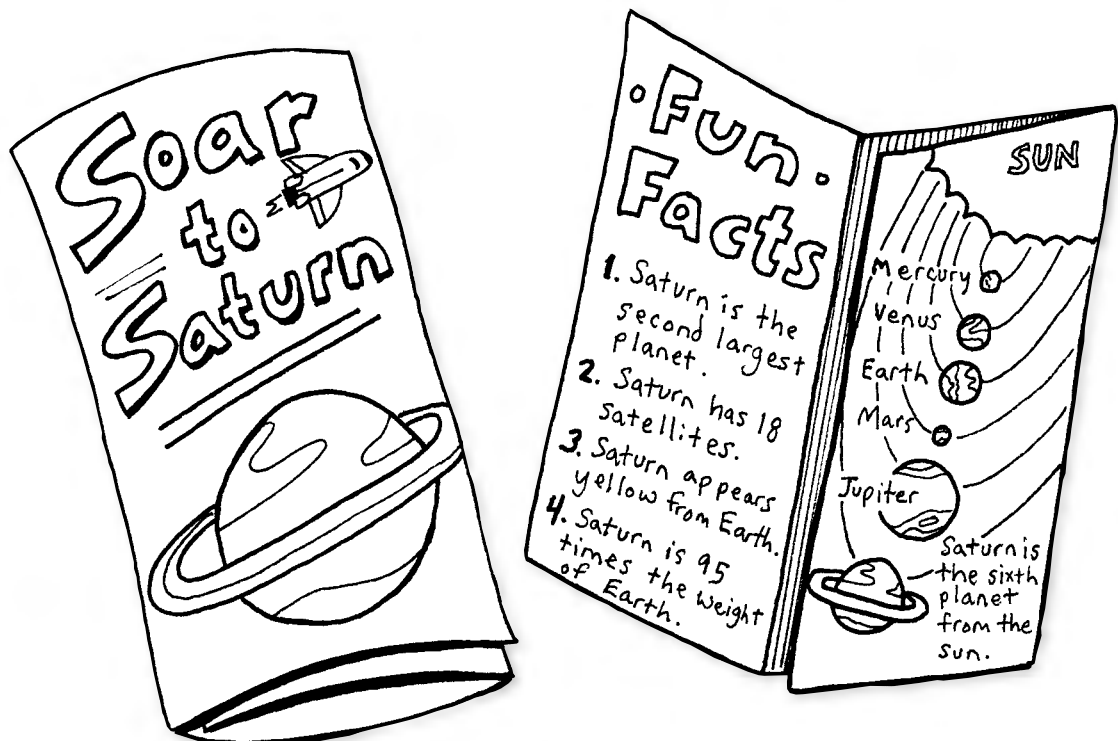 Soar
to
Saturn
Fun
Facts
1. Saturn is the
second largest
planet.
2. Saturn has 18
satellites.
3. Saturn appears
yellow from Earth.
4. Saturn is 95
times the weight
of Earth.
SUN
Mercury
Venus
Earth
Mars
Jupiter
Saturn is
the sixth
planet
from the
sun.